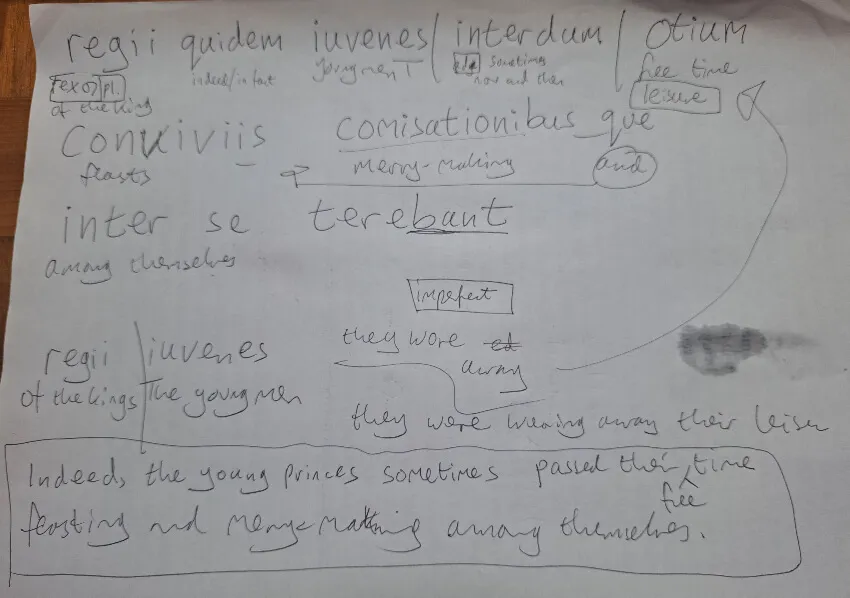 regii quidem iuvenes / interdum / otium
indeed/in fact young men sometime free time
pl. now and then leisure
of the king
Conviviis comisationibus que
feasts merry-making and
inter se terebant
among themselves
imperfect
regii | iuvenes they wore ed
away
of the kings The young men
they were wearing away their leisu
Indeed, the young princes sometimes passed their time
free
feasting and merry-making among themselves.